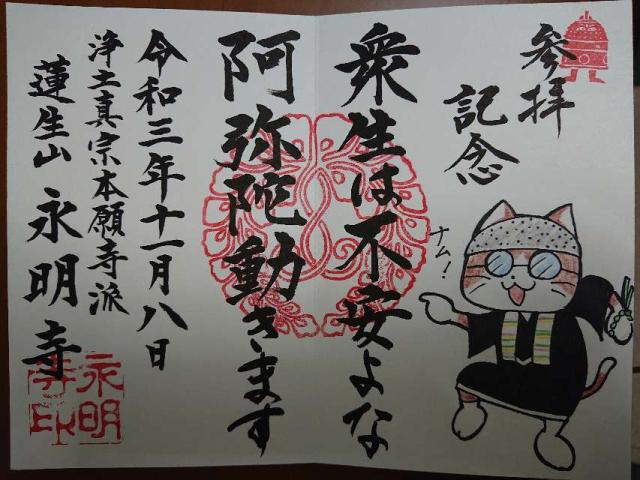 参拝
記念
ナム！
衆生は不安よな
阿弥陀動きます
令和三年十一月八日
浄土真宗本願寺派
蓮生山 永明寺
永明
寺印